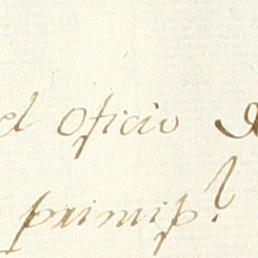 el oficio d
princip.l